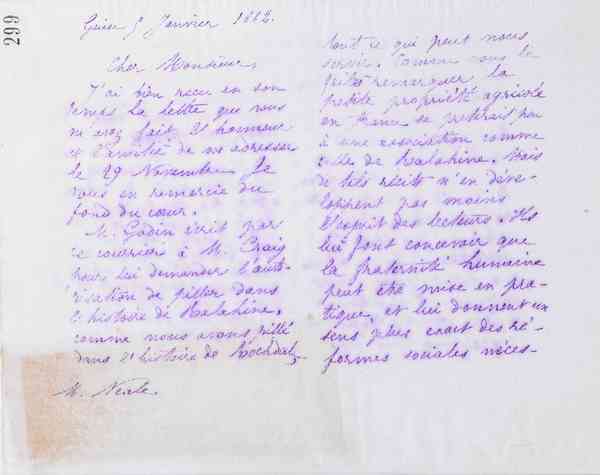 299
Guise 5 Janvier 1882.
Cher Monsieur,
J'ai bien reçu en son
temps la lettre que vous
m'avez fait l'honneur
et l'amitié de m'adresser
le 29 Novembre. Je
vous en remercie du
fond du cœur.
M. Godin écrit par
ce courrier à M. Craig
pour lui demander l'auto-
risation de piller dans
l'histoire de Ralahine,
comme nous avons pillé
dans l'histoire de Rochdale,
M. Neale.
tout ce qui peut nous
servir. Comme vous le
faites remarquer la
petite propriété agricole
en France se prêterait peu
à une association comme
celle de Ralahine. Mais
de tels récits n'en déve-
loppent pas moins
l'esprit des lecteurs. Ils
lui font concevoir que
la fraternité humaine
peut être mise en pra-
tique, et lui donnent un
sens plus exact des ré-
formes sociales néces-